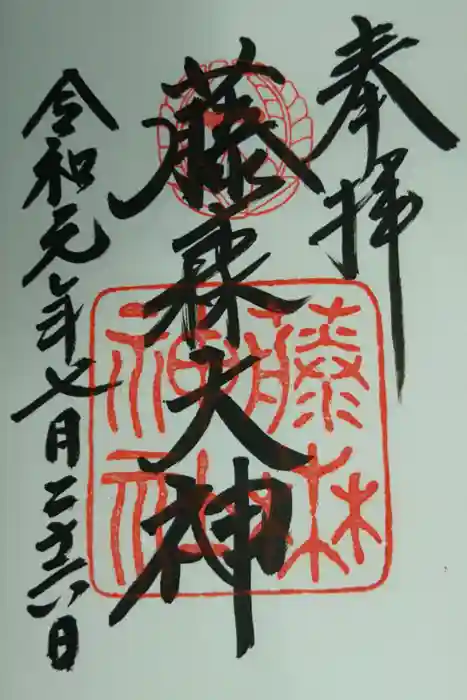 奉拝
藤森大神
令和元年七月二十六日
神社